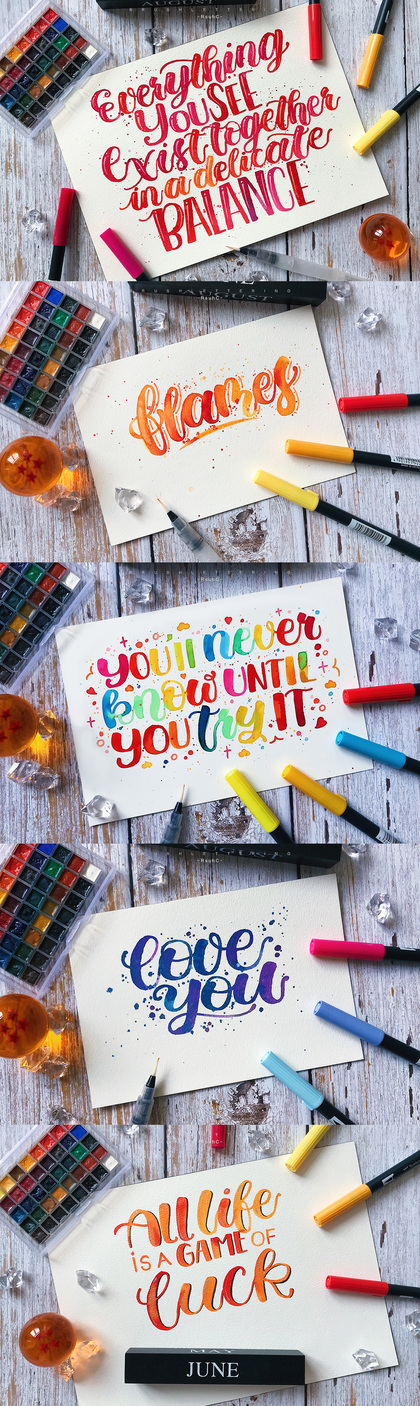 AUGUST
Everything
YOU SEE
Exist together
in a delicate
BALANCE
AUGUST
flames
you'll never
know UNTIL
YOU try IT
AUGUST
love
you
All life
IS A GAME OF
luck
MAY
JUNE